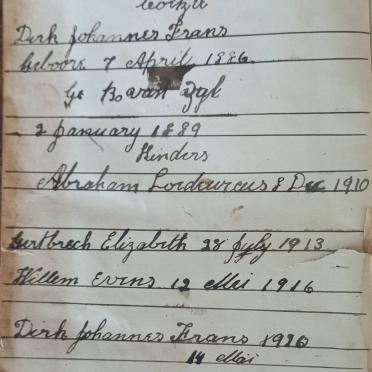 Dirk Johannes Frans
Geboore 7 April 1886
Ge Bo van Zyl
2 January 1889
Kinders
Abraham 8 Dec 1910
Elizabeth 28 July 1913
Willem Evens 12 Mei 1916
Dirk Johannes Frans 1920
14 Mei